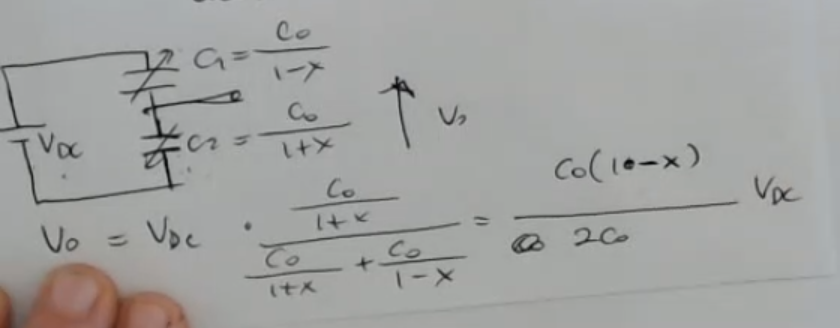 C1 = C0 / (1-x)
VDC
C2 = C0 / (1+x)
V0
V0 = VDC · (C0 / (1+x)) / (C0 / (1+x) + C0 / (1-x)) = C0(1-x) / 2C0 VDC